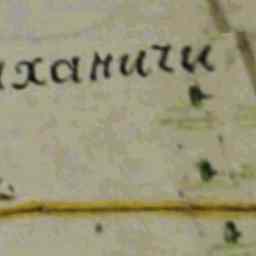 иханичи